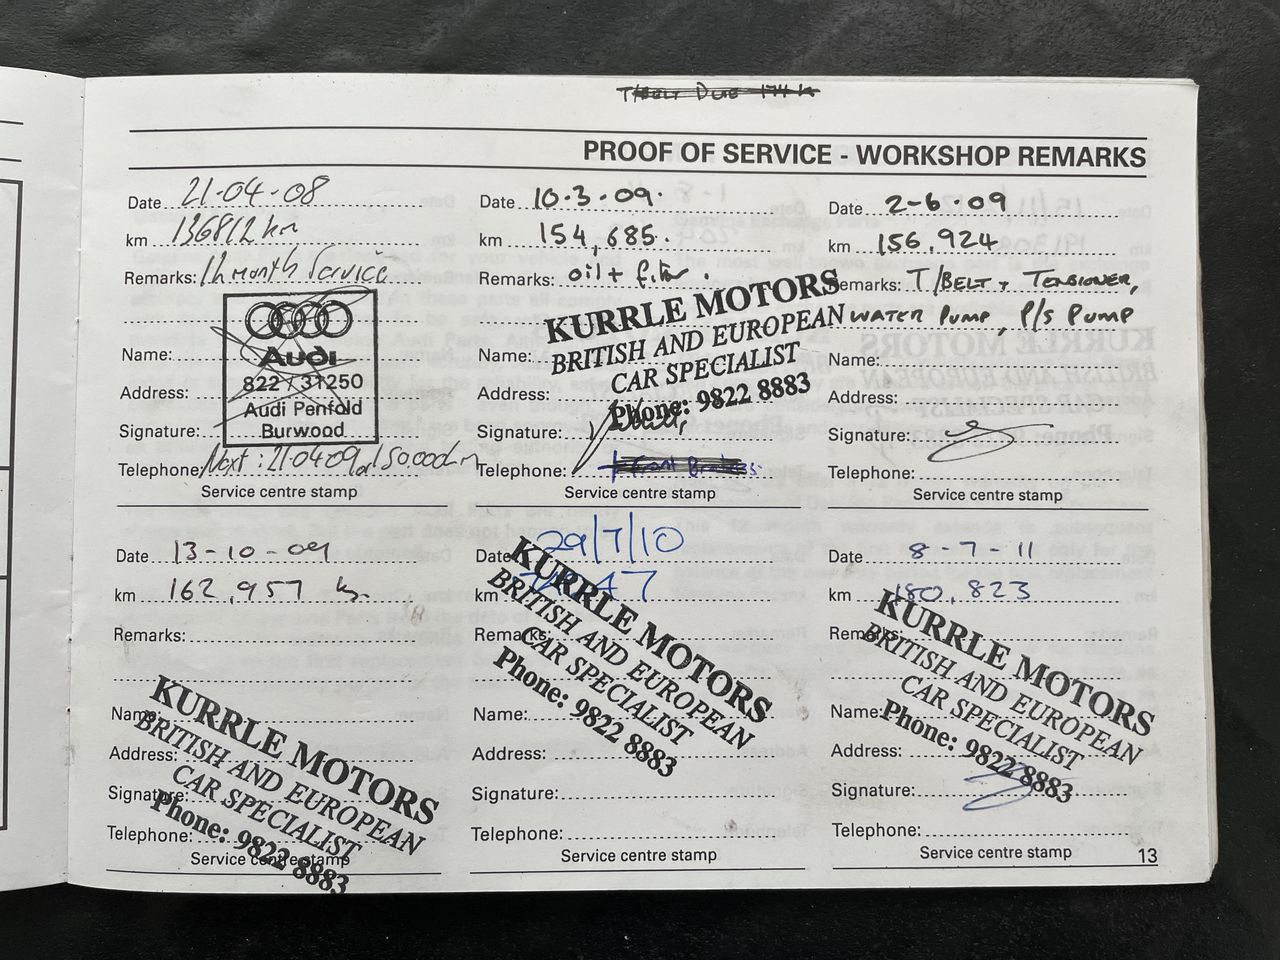 T/BELT DUE 174 K
PROOF OF SERVICE - WORKSHOP REMARKS
Date 21-04-08
km 136812 km
Remarks: 12 month Service
Audi
822 / 31250
Audi Penfold
Burwood
Name:
Address:
Signature:
Telephone: Next: 21-04-09 at 150.000km
Service centre stamp
Date 10.3.09.
km 154,685.
Remarks: oil + filter.
KURRLE MOTORS
BRITISH AND EUROPEAN
CAR SPECIALIST
Phone: 9822 8883
Name:
Address:
Signature:
Telephone: + Front
Service centre stamp
Date 2-6-09
km 156,924
Remarks: T/BELT + TENSIONER,
WATER PUMP, P/S PUMP
Name:
Address:
Signature:
Telephone:
Service centre stamp
Date 13-10-09
km 162,957 k
Remarks:
KURRLE MOTORS
BRITISH AND EUROPEAN
CAR SPECIALIST
Phone: 9822 8883
Name:
Address:
Signature:
Telephone:
Service centre stamp
Date 29/7/10
km 47
Remarks:
KURRLE MOTORS
BRITISH AND EUROPEAN
CAR SPECIALIST
Phone: 9822 8883
Name:
Address:
Signature:
Telephone:
Service centre stamp
Date 8-7-11
km 180,823
Remarks:
KURRLE MOTORS
BRITISH AND EUROPEAN
CAR SPECIALIST
Phone: 9822 8883
Name:
Address:
Signature:
Telephone:
Service centre stamp
13